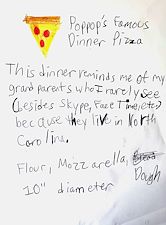 Poppop's Famous
Dinner Pizza
This dinner reminds me of my
grand parents who I rarely see
(besides Skype, FaceTime, etc.)
because they live in North
Carolina.
Flour, Mozzarella, Bread
Dough
10" diameter